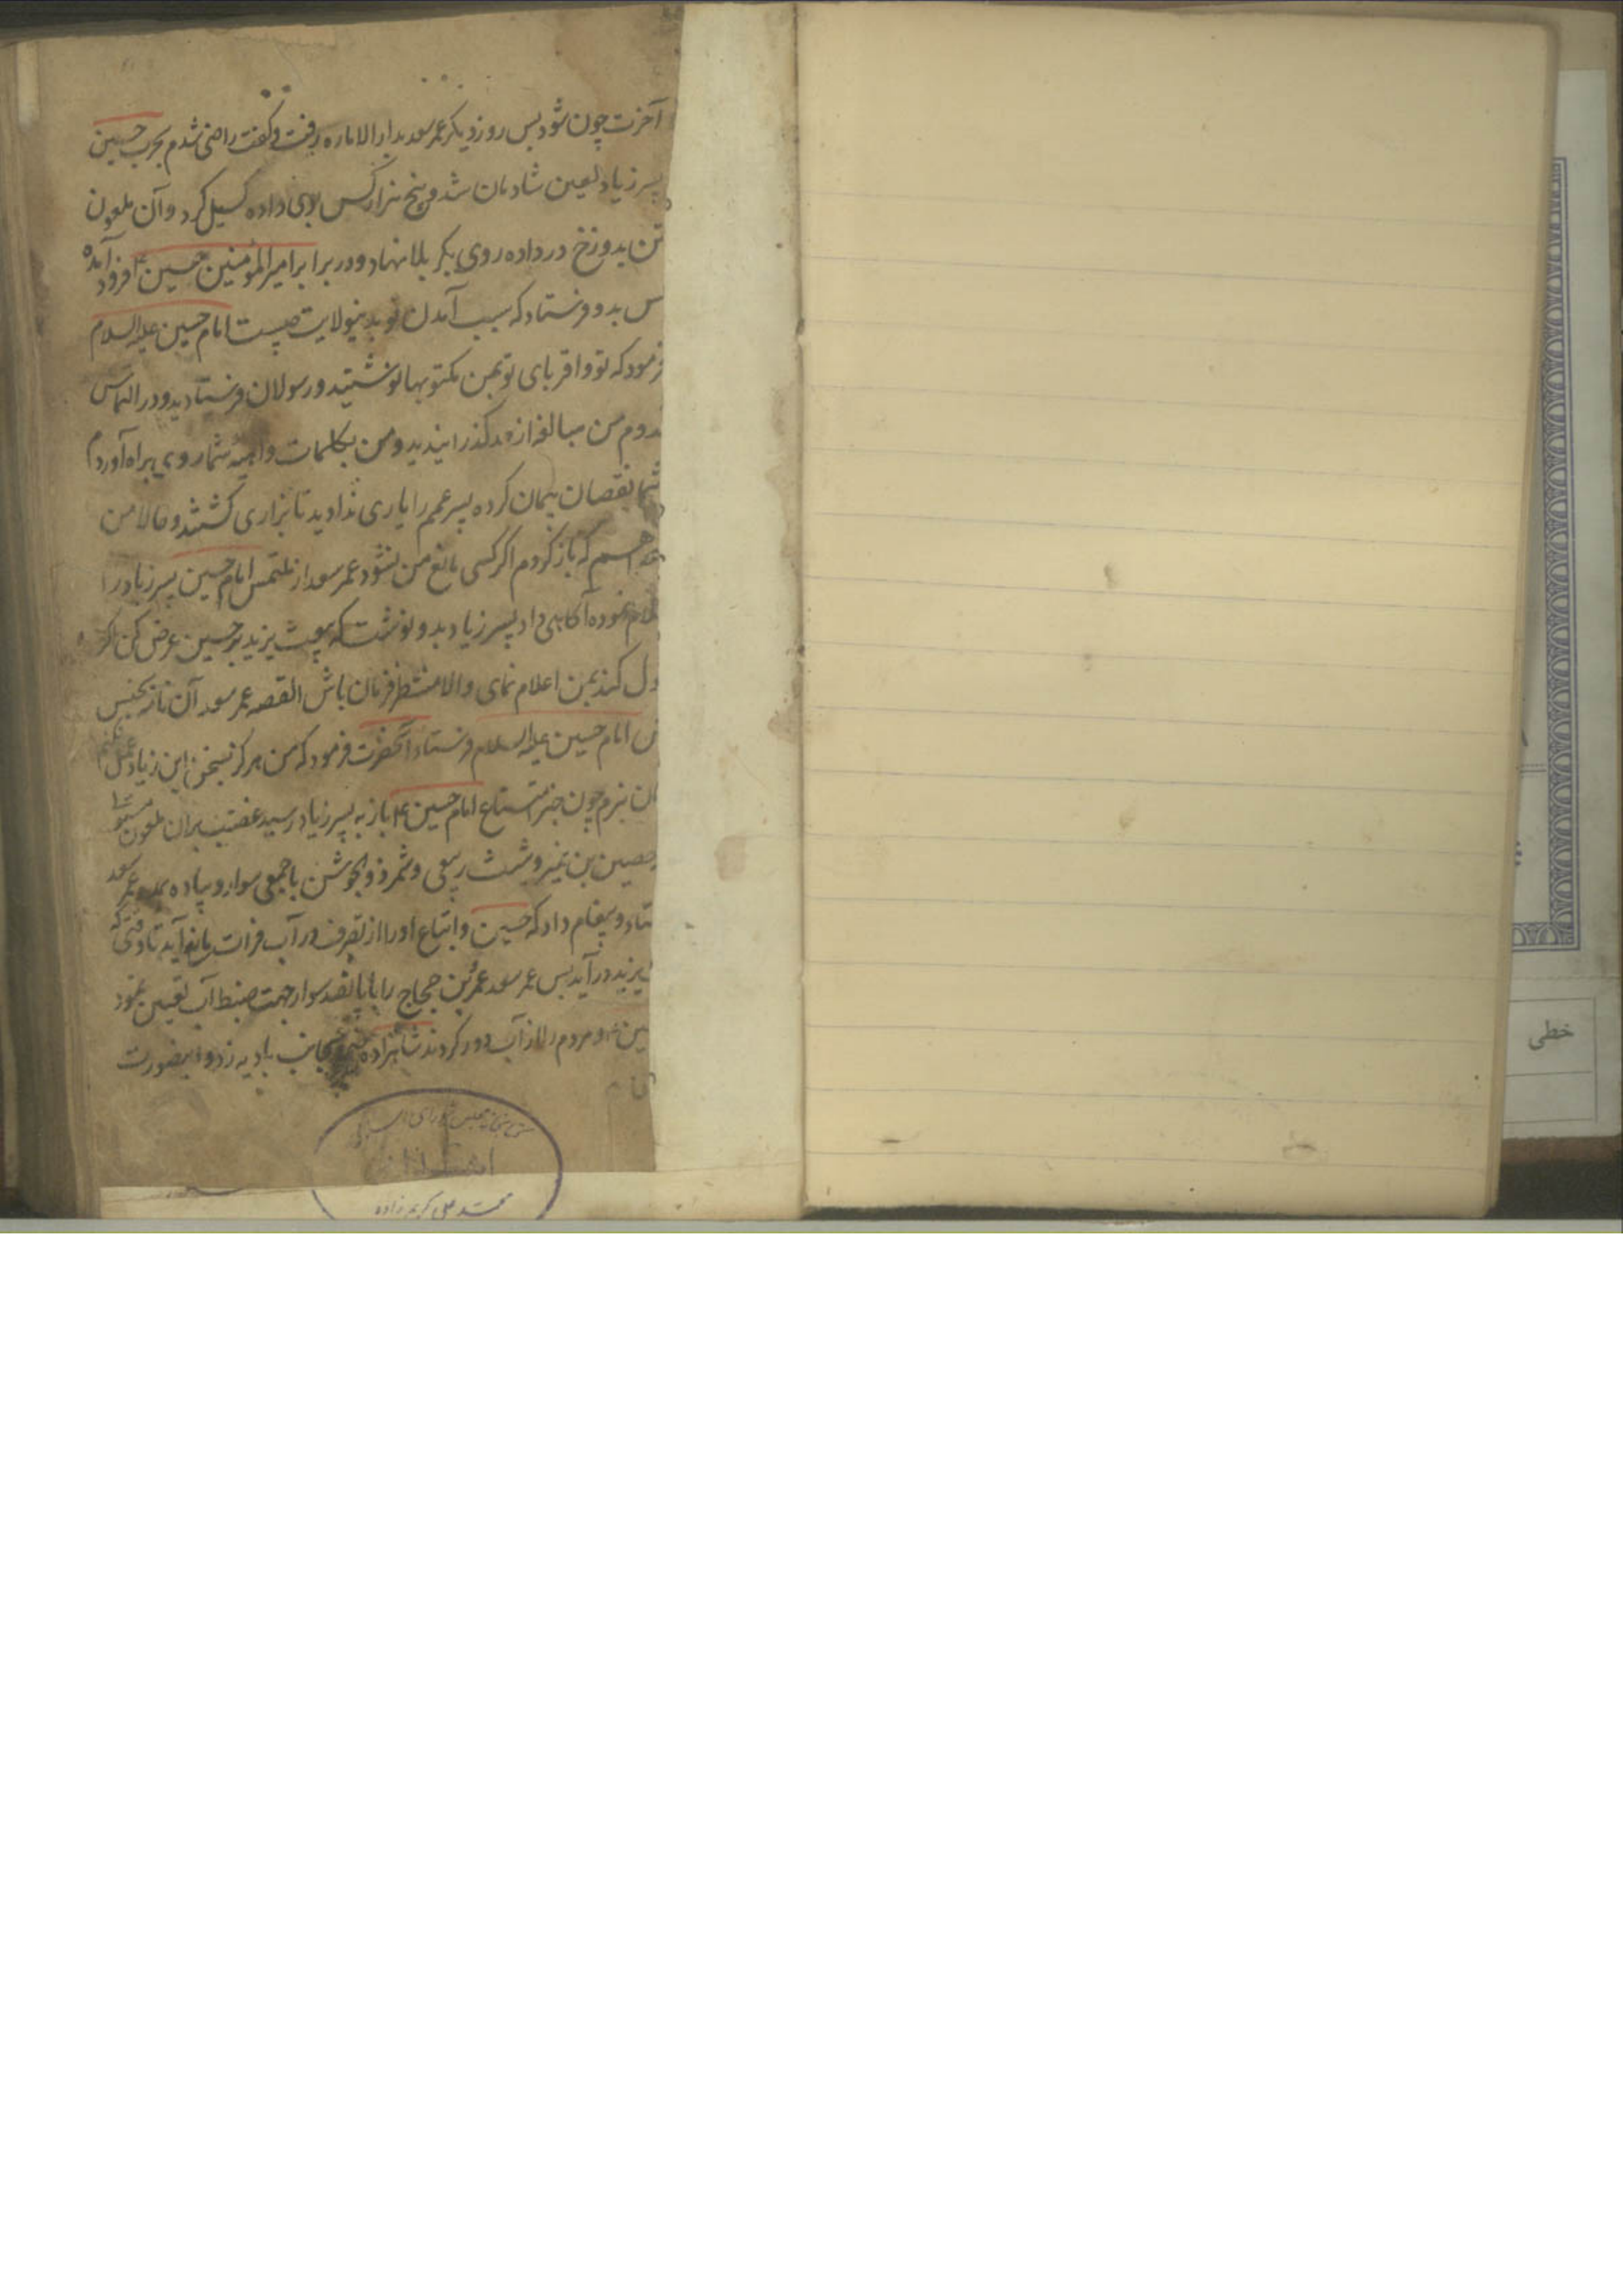 آخرت چون شود پس روز دیگر عمر سعد بدار الاماره رفت و گفت راضی شدم بحرب حسین
پسر زیاد لعین شادمان شد و پنج هزار کس بوی داده کسیل کرد و آن ملعون
تن بدوزخ در داده روی بکربلا نهاد و در برابر امیر المؤمنین حسین ع فرود آمده
کس بدو فرستاد که سبب آمدن تو بدینولایت چیست امام حسین علیه السلام
فرمود که تو و اقربای تو بمن مکتوبها نوشتید و رسولان فرستادید و در التماس
قدوم من مبالغه از حد گذرانیدید و من بکلمات واهیه شما روی براه آوردم
شما نقصان پیمان کرده پسر عمم را یاری ندادید تا بزاری کشتند و حالا من
هم که باز گردم اگر کسی مانع من نشود عمر سعد از ملتمس امام حسین پسر زیاد را
اعلام نموده آگاهی داد پسر زیاد بدو نوشت که بیعت یزید بر حسین عرض کن اگر
ول کند بمن اعلام نمای و الا منتظر فرمان باش القصه عمر سعد آن نامه بجنس
امام حسین علیه السلام فرستاد آنحضرت فرمود که من هرگز بسخن ابن زیاد عمل نکنم
نبرم چون خبر امتناع امام حسین ع باز به پسر زیاد رسید غضب بران ملعون
حصین بن نمیر و شبث ربعی و شمر ذو الجوشن با جمعی سوار و پیاده عمر سعد
ستاد و پیغام داد که حسین و اتباع او را از تصرف در آب فرات مانع آید تا وقتی که
یزید در آید پس عمر سعد عمرو بن حجاج را با پانصد سوار جهت ضبط آب تعیین نمود
ع و مردم را از آب دور کردند شاهزاده بجانب بادیه زد و اینصورت
کتابخانه مجلس شورای اسلامی
اهدائی
محمد علی کریم زاده
خطی